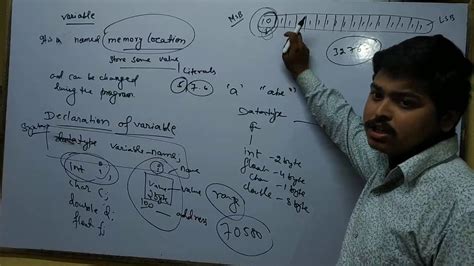 variable
It is a named memory location
store some value
Literals
5, 7.6
"a" "abc"
and can be changed
during the program
Declaration of variable
Syntax
datatype variable-name;
int i;
char c;
double d;
float f;
i name
value value
2 byte
100 address
range
70500
Datatype
int - 2 byte
float - 4 byte
char - 1 byte
double - 8 byte
MSB
LSB
1 0